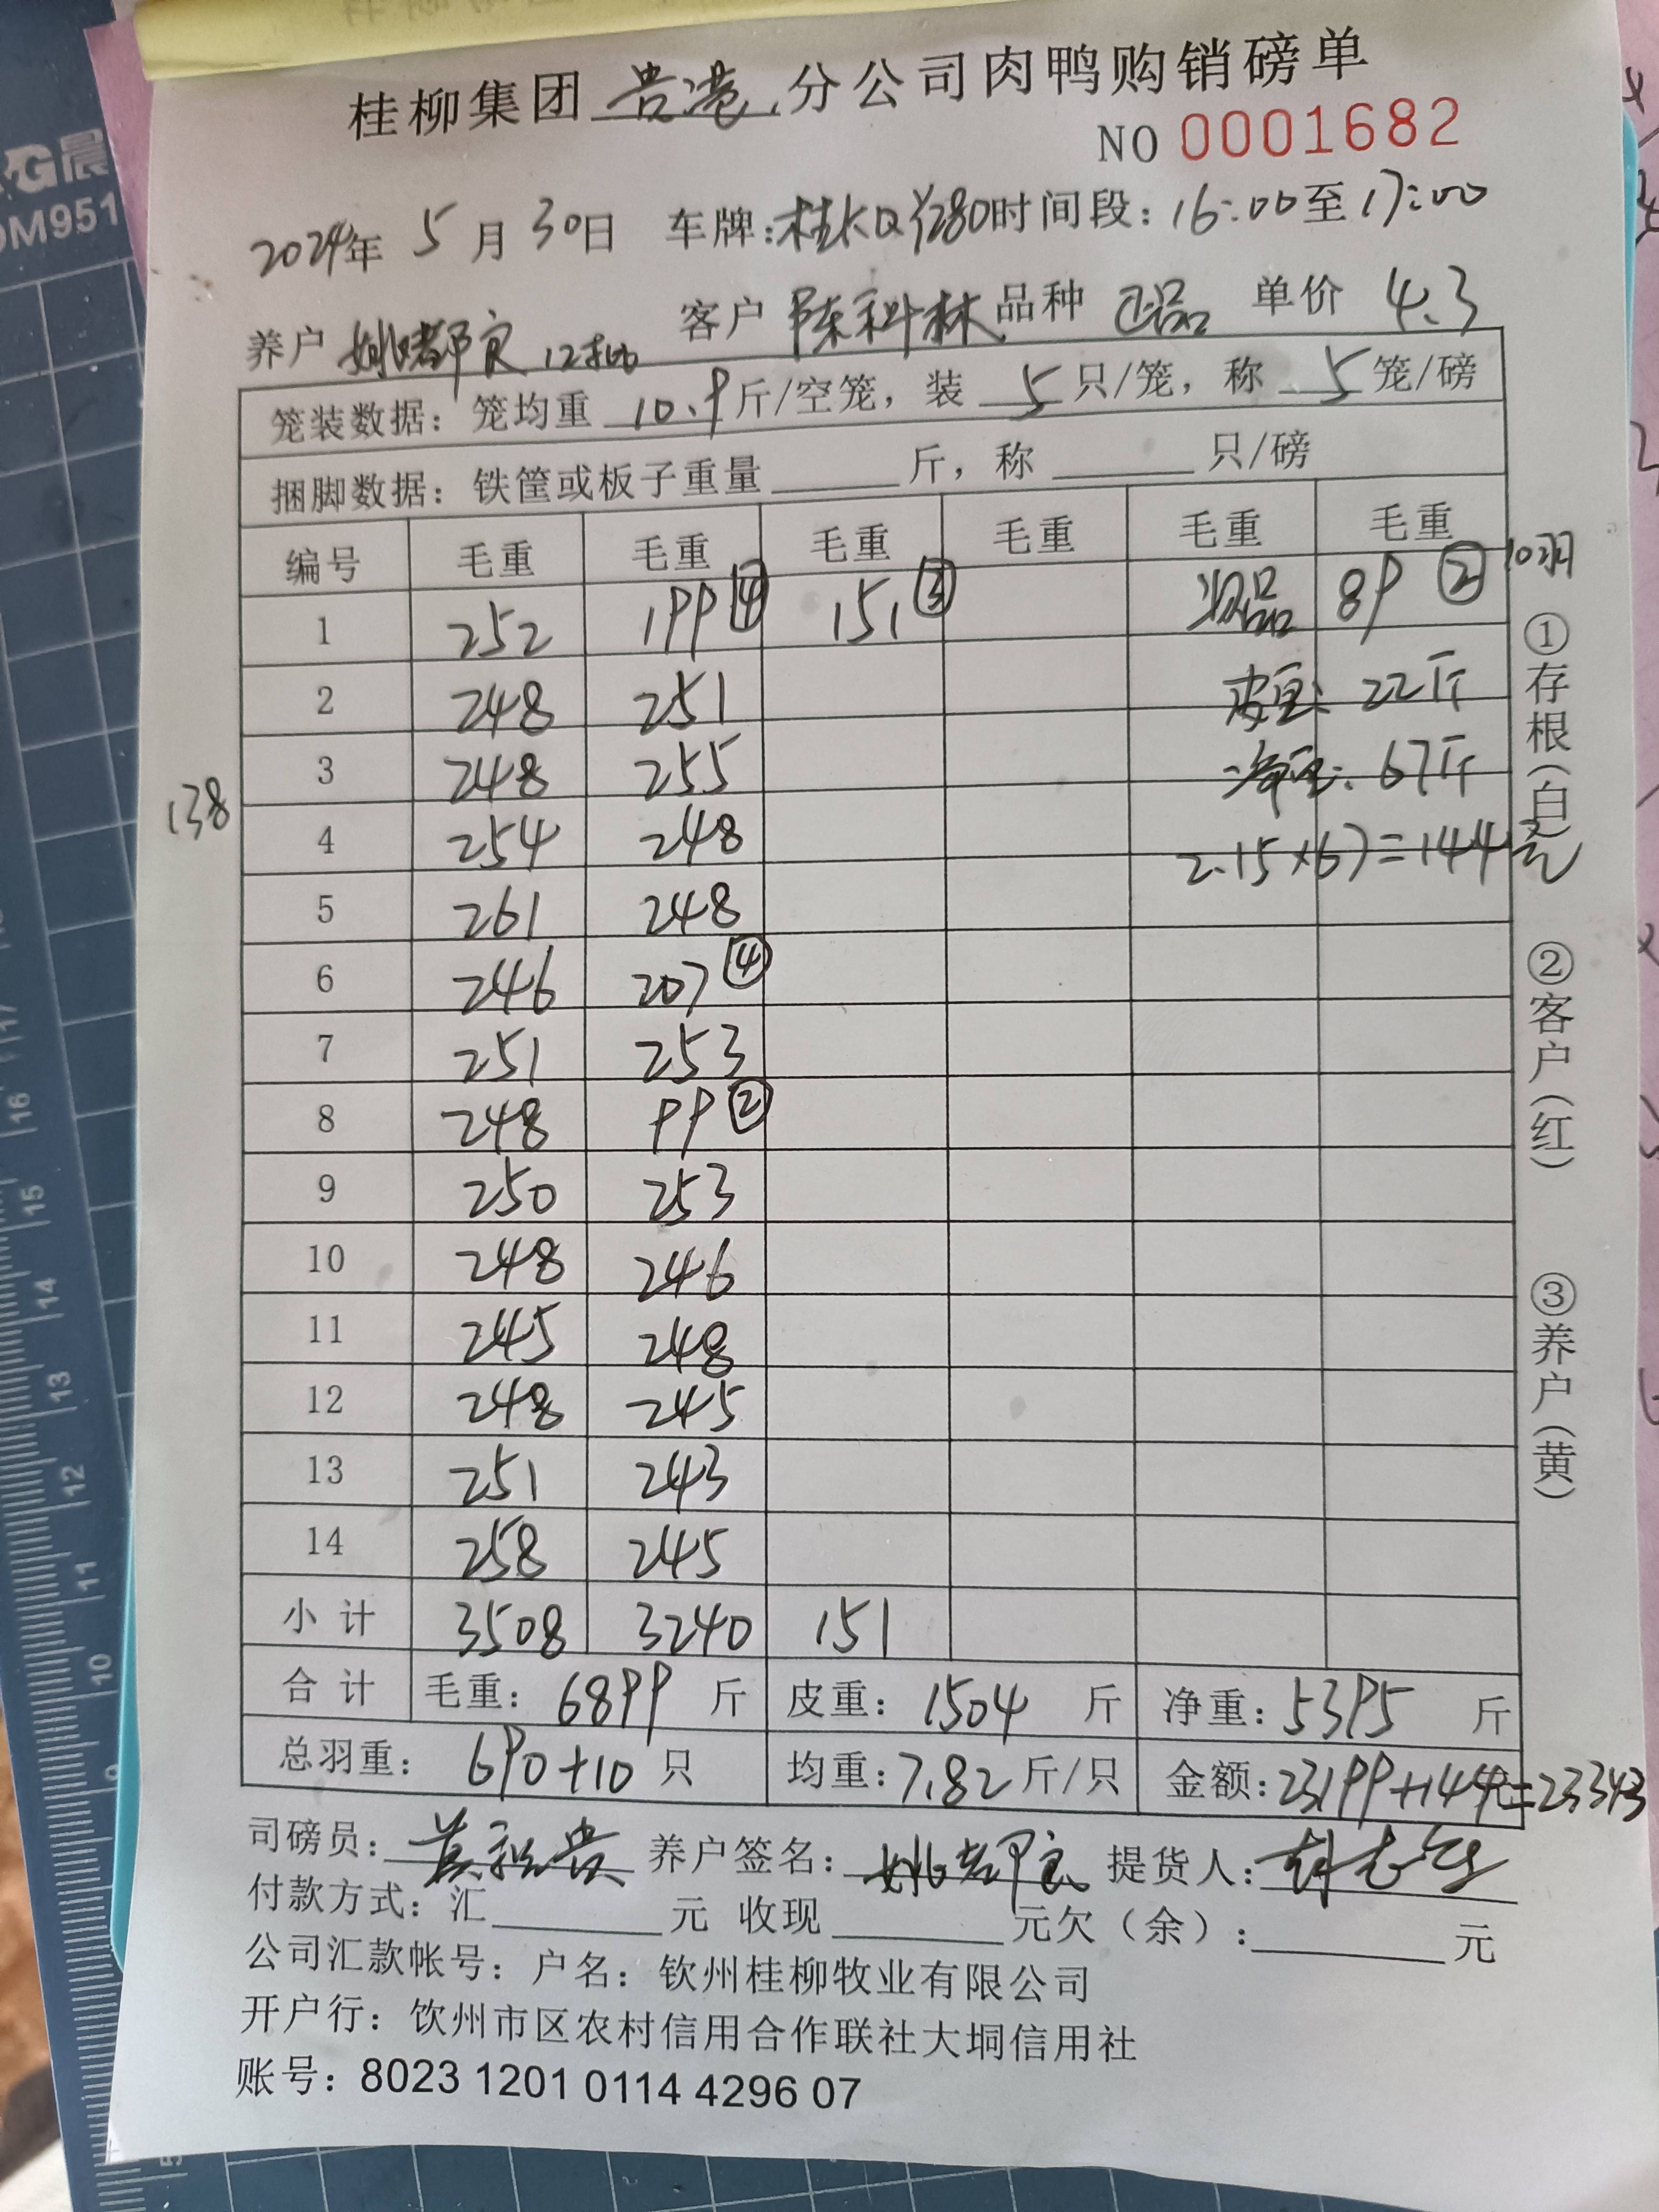 桂柳集团 贵港 分公司肉鸭购销磅单
NO 0001682
2024年 5月30日 车牌:桂 时间段：16:00至17:00
养户 姚都良 12批 客户 陈科林 品种 正品 单价 4.3
笼装数据：笼均重 10.9 斤/空笼，装 5 只/笼，称 5 笼/磅
捆脚数据：铁筐或板子重量 斤，称 只/磅
编号 毛重 毛重 毛重 毛重 毛重 毛重
1 252 199④ 151③ 次品 89② 10羽
2 248 251 皮重: 22斤
3 248 255 净重: 67斤
138
4 254 248 2.15×67=144元
5 261 248
6 246 207④
7 251 253
8 248 99②
9 250 253
10 248 246
11 245 248
12 248 245
13 251 243
14 258 245
小计 3508 3240 151
合计 毛重：6899 斤 皮重：1504 斤 净重：5395 斤
总羽重：690+10 只 均重：7.82 斤/只 金额：23199+144=23343
司磅员： 养户签名：姚都良 提货人：
付款方式：汇 元 收现 元欠（余）： 元
公司汇款帐号：户名：钦州桂柳牧业有限公司
开户行：饮州市区农村信用合作联社大垌信用社
账号：8023 1201 0114 4296 07
①存根（白）
②客户（红）
③养户（黄）
G晨
DM951
17
16
15
14
13
12
11
10
9